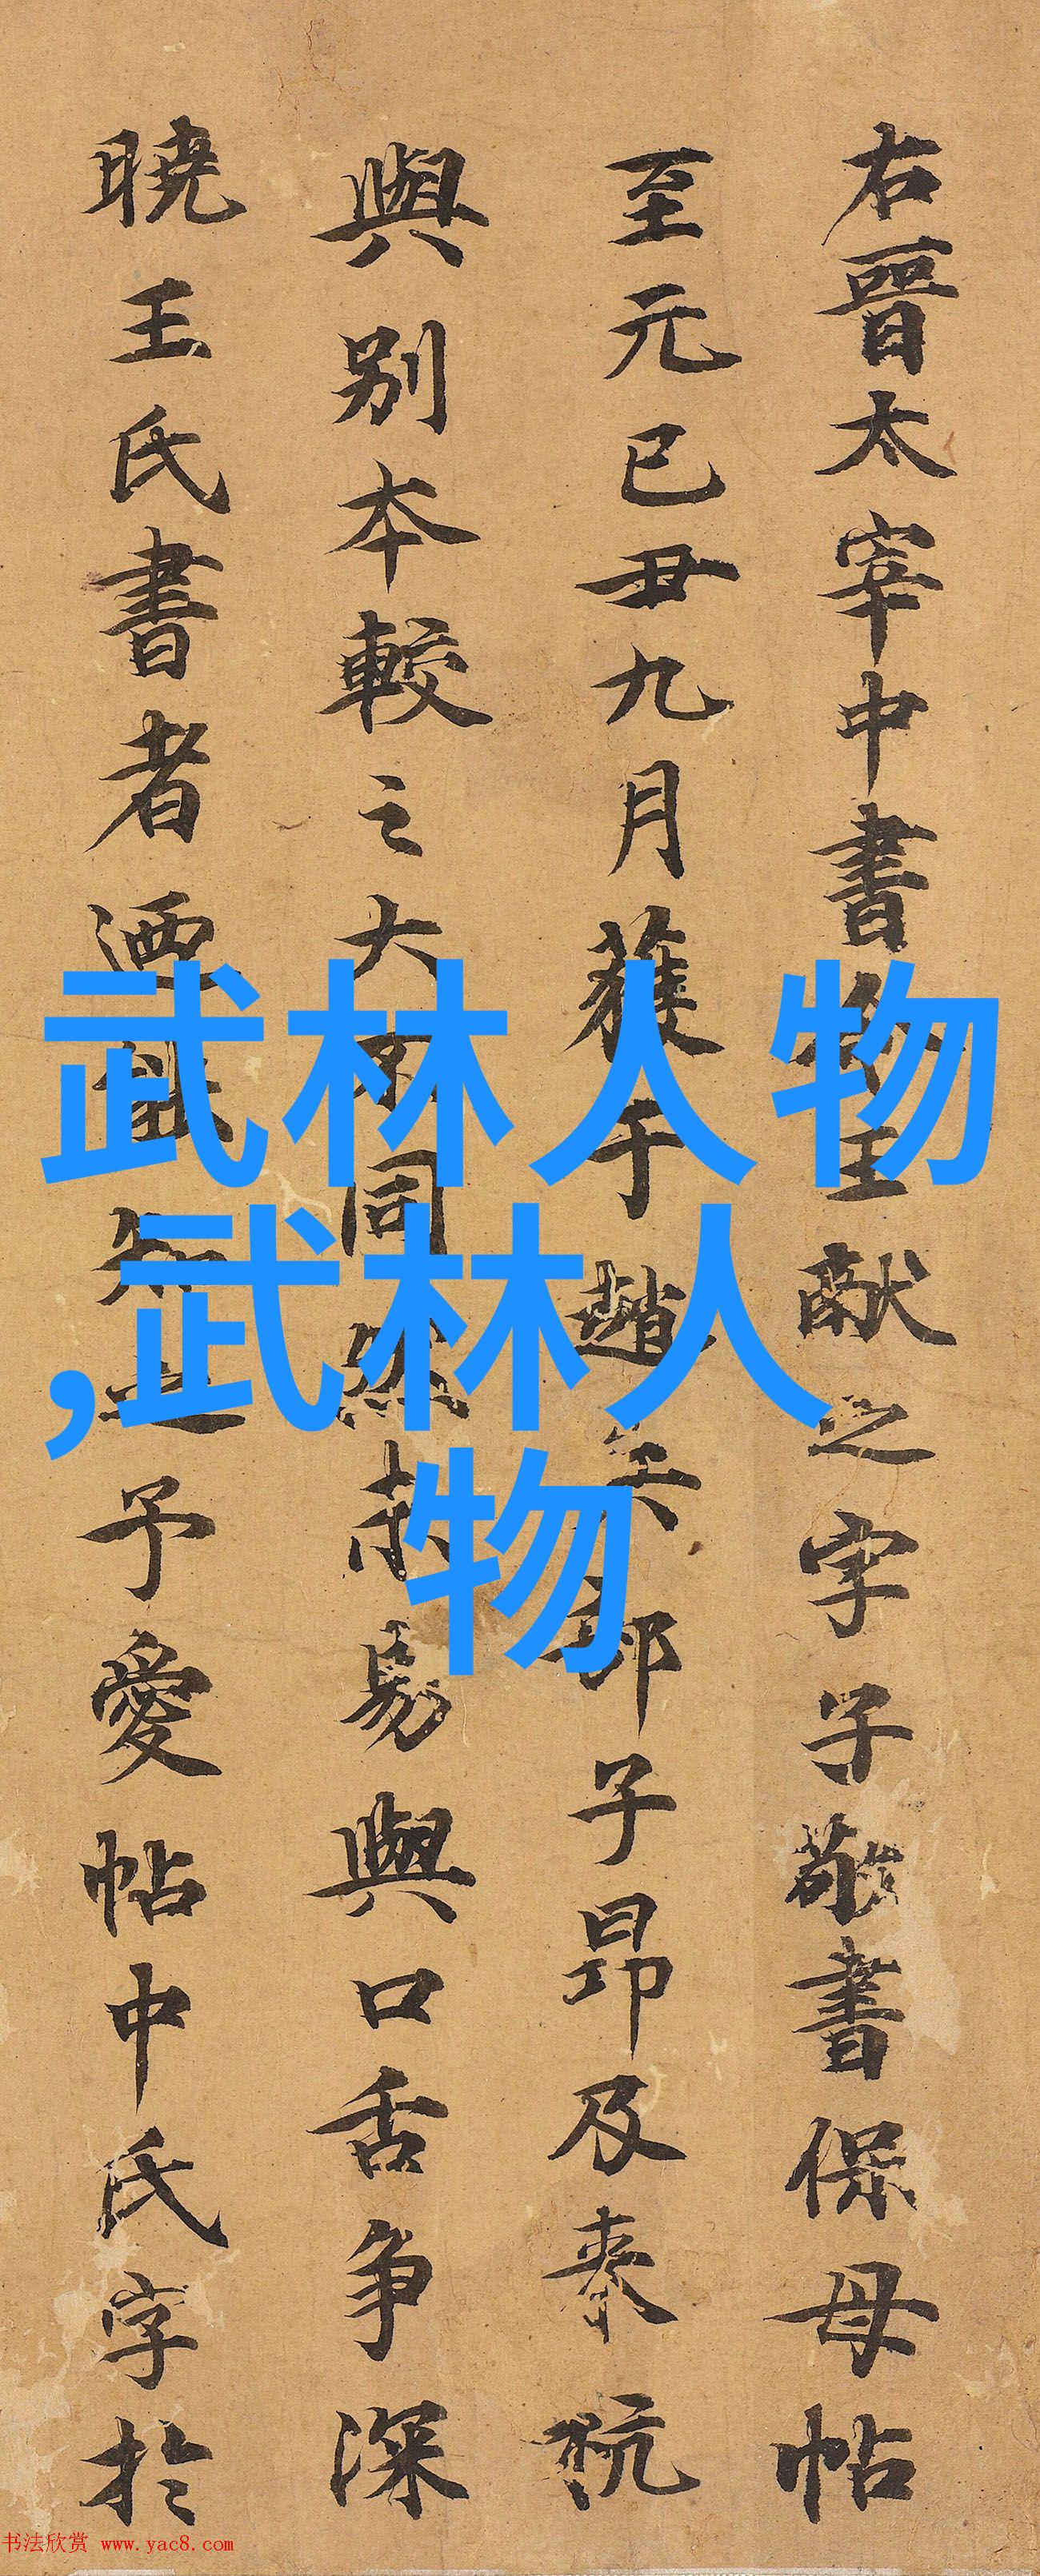 右晉太宰中書令王献之字子敬書保母帖
至元己丑九月獲于趙兵部子昂及來杭
與別本較之大不同然易與口舌爭深
曉王氏書者迺知之予愛帖中氏字於
武林人物
,武林人
物
书法欣赏 www.yac8.com